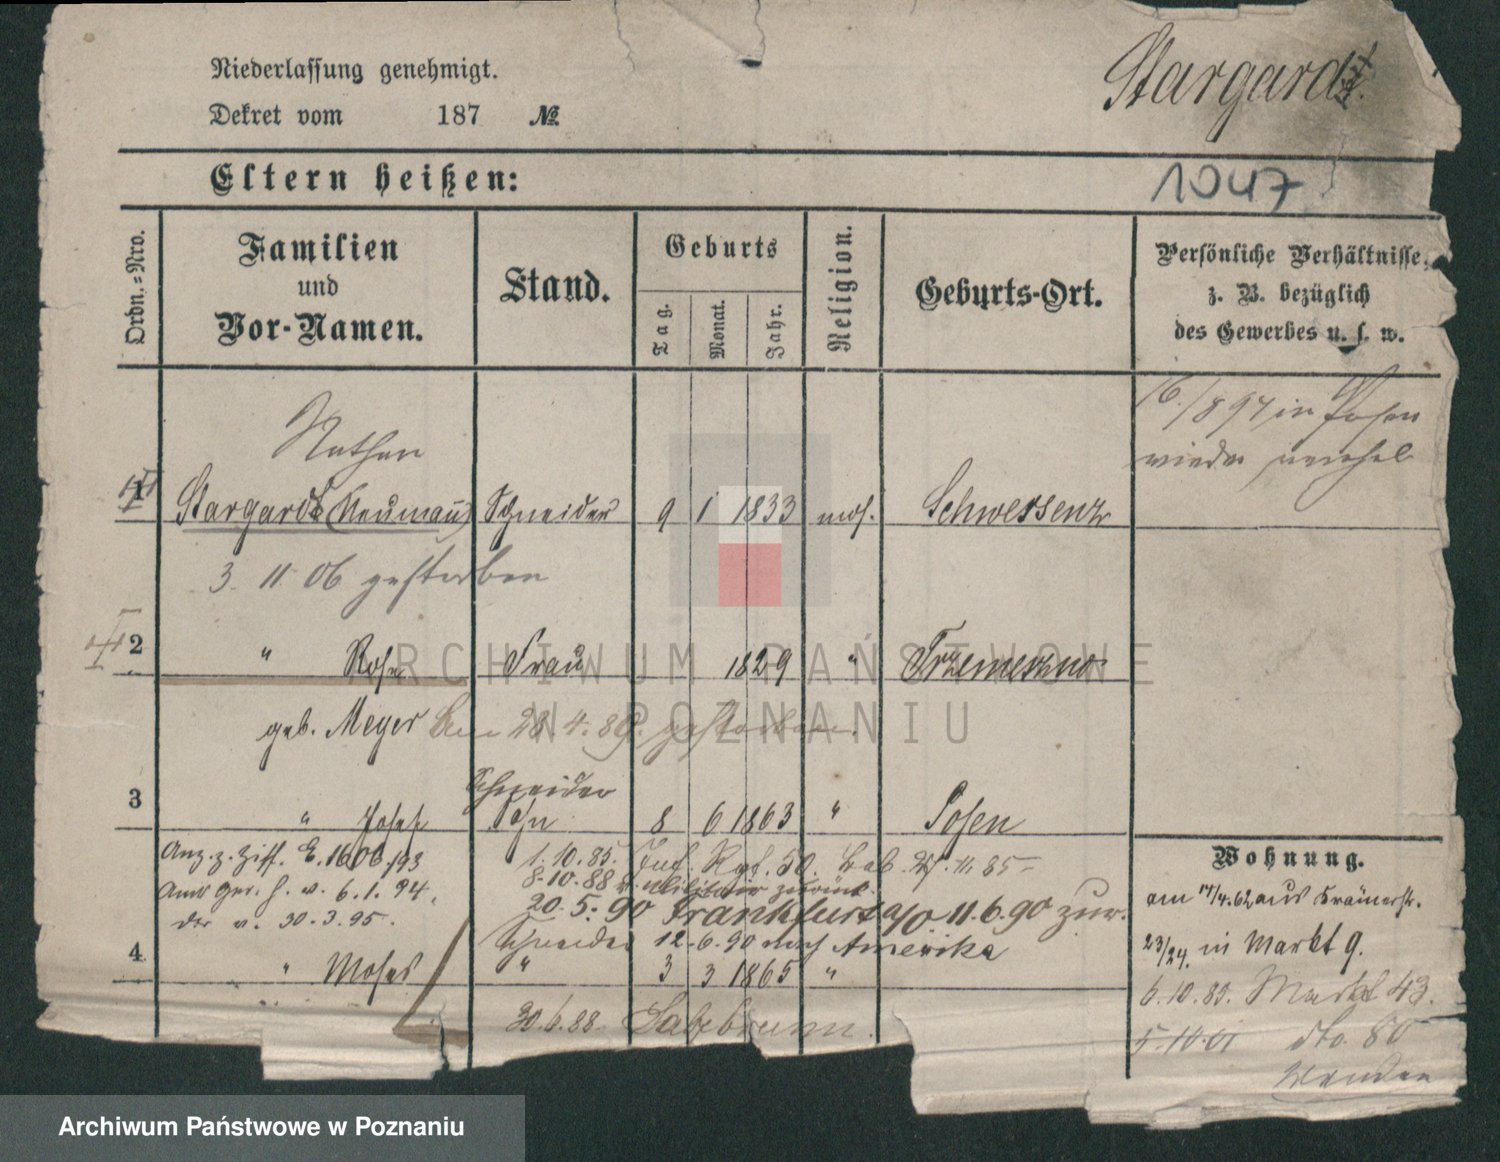 Niederlassung genehmigt.
Dekret vom 187 №
Stargardt.
1047
Eltern heißen:
Ordn.-Nro.
Familien
und
Vor-Namen.
Stand.
Geburts
Tag.
Monat.
Jahr.
Religion.
Geburts-Ort.
Persönliche Verhältnisse,
z. B. bezüglich
des Gewerbes u. s. w.
16/8 97 in Posen
wieder
Nathan
1 Stargardt (Neumann) Schneider 9 1 1833 mos. Schwersenz
3. 11. 06 gestorben
2 " Rosa Frau 1829 " Trzemeszno
geb. Meyer am 28.4.89. gestorben.
Schneider
3 " Josef Sohn 8 6 1863 " Posen
Anz. z. Ziff. E. 1606/93
Amts Ger. H. v. 6.1.94.
der v. 30.3.95.
1.10.85. Inf. Rgt. 50. 11.85
8.10.88 v. Militair zurück.
20.5.90 Frankfurt a/O 11.6.90 zur.
Schneider 12.6.90 nach Amerika
4 " Moses " 3 3 1865 "
30.6.88. Salzbrunn.
Wohnung.
am 17/4.62 aus Krämerstr.
23/24. in Markt 9.
6.10.89. Markt 43.
5.10.01 dto. 80
ARCHIWUM PAŃSTWOWE
W POZNANIU
Archiwum Państwowe w Poznaniu